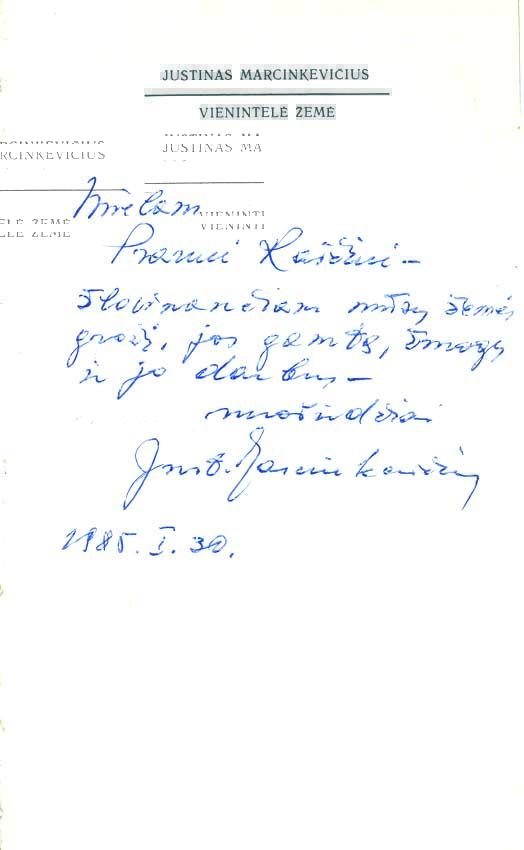 JUSTINAS MARCINKEVIČIUS
VIENINTELĖ ŽEMĖ
RCINKEVIČIUS
JUSTINAS MA
ELĖ ŽEMĖ
VIENINTI
Mielam
Pranui
šlovinančiam mūsų žemės
grožį, jos gamtą, žmogų
ir jo darbus –
nuoširdžiai
Just. Marcinkevičius
1985. I. 30.